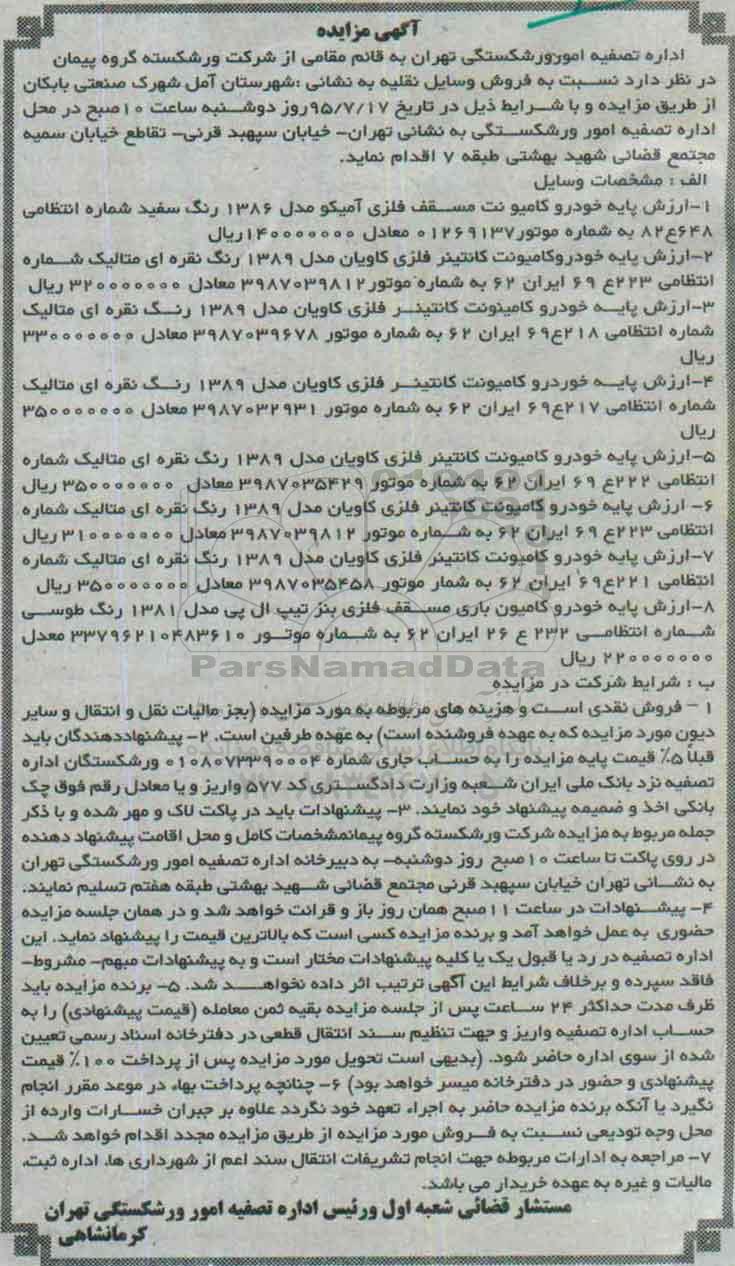 آگهی مزایده
اداره تصفیه امورورشکستگی تهران به قائم مقامی از شرکت ورشکسته گروه پیمان
در نظر دارد نسبت به فروش وسایل نقلیه به نشانی :شهرستان آمل شهرک صنعتی بابکان
از طریق مزایده و با شرایط ذیل در تاریخ ۹۵/۷/۱۷روز دوشنبه ساعت ۱۰صبح در محل
اداره تصفیه امور ورشکستگی به نشانی تهران- خیابان سپهبد قرنی- تقاطع خیابان سمیه
مجتمع قضائی شهید بهشتی طبقه ۷ اقدام نماید.
الف : مشخصات وسایل
۱-ارزش پایه خودرو کامیو نت مسقف فلزی آمیکو مدل ۱۳۸۶ رنگ سفید شماره انتظامی
۶۴۸ع۸۲ به شماره موتور۰۱۲۶۹۱۳۷ معادل ۱۴۰۰۰۰۰۰۰ریال
۲-ارزش پایه خودروکامیونت کانتینر فلزی کاویان مدل ۱۳۸۹ رنگ نقره ای متالیک شماره
انتظامی ۲۲۳ع ۶۹ ایران ۶۲ به شماره موتور۳۹۸۷۰۳۹۸۱۲ معادل ۳۲۰۰۰۰۰۰۰ ریال
۳-ارزش پایه خودرو کامینونت کانتینر فلزی کاویان مدل ۱۳۸۹ رنگ نقره ای متالیک
شماره انتظامی ۲۱۸ع۶۹ ایران ۶۲ به شماره موتور ۳۹۸۷۰۳۹۶۷۸ معادل ۳۳۰۰۰۰۰۰۰
ریال
۴-ارزش پایه خوردرو کامیونت کانتینر فلزی کاویان مدل ۱۳۸۹ رنگ نقره ای متالیک
شماره انتظامی ۲۱۷ع۶۹ ایران ۶۲ به شماره موتور ۳۹۸۷۰۳۲۹۳۱ معادل ۳۵۰۰۰۰۰۰۰
ریال
۵-ارزش پایه خودرو کامیونت کانتینر فلزی کاویان مدل ۱۳۸۹ رنگ نقره ای متالیک شماره
انتظامی ۲۲۲ع ۶۹ ایران ۶۲ به شماره موتور ۳۹۸۷۰۳۵۴۲۹ معادل ۳۵۰۰۰۰۰۰۰ ریال
۶- ارزش پایه خودرو کامیونت کانتینر فلزی کاویان مدل ۱۳۸۹ رنگ نقره ای متالیک شماره
انتظامی ۲۲۳ع ۶۹ ایران ۶۲ به شماره موتور ۳۹۸۷۰۳۹۸۱۲ معادل ۳۱۰۰۰۰۰۰۰ ریال
۷-ارزش پایه خودرو کامیونت کانتینر فلزی کاویان مدل ۱۳۸۹ رنگ نقره ای متالیک شماره
انتظامی ۲۲۱ع۶۹ ایران ۶۲ به شمار موتور ۳۹۸۷۰۳۵۴۵۸ معادل ۳۵۰۰۰۰۰۰۰ ریال
۸-ارزش پایه خودرو کامیون باری مسقف فلزی بنز تیپ ال پی مدل ۱۳۸۱ رنگ طوسی
شماره انتظامی ۲۳۲ ع ۲۶ ایران ۶۲ به شماره موتور ۳۳۷۹۶۲۱۰۴۸۳۶۱۰ معدل
۲۲۰۰۰۰۰۰۰ ریال
ParsNamadData
ب : شرایط شرکت در مزایده
۱ – فروش نقدی است و هزینه های مربوطه به مورد مزایده (بجز مالیات نقل و انتقال و سایر
دیون مورد مزایده که به عهده فروشنده است) به عهده طرفین است. ۲- پیشنهاددهندگان باید
قبلاً ۵٪ قیمت پایه مزایده را به حساب جاری شماره ۰۱۰۸۰۷۳۳۹۰۰۰۴ ورشکستگان اداره
تصفیه نزد بانک ملی ایران شعبه وزارت دادگستری کد ۵۷۷ واریز و یا معادل رقم فوق چک
بانکی اخذ و ضمیمه پیشنهاد خود نمایند. ۳- پیشنهادات باید در پاکت لاک و مهر شده و با ذکر
جمله مربوط به مزایده شرکت ورشکسته گروه پیمانمشخصات کامل و محل اقامت پیشنهاد دهنده
در روی پاکت تا ساعت ۱۰صبح روز دوشنبه- به دبیرخانه اداره تصفیه امور ورشکستگی تهران
به نشانی تهران خیابان سپهبد قرنی مجتمع قضائی شهید بهشتی طبقه هفتم تسلیم نمایند.
۴- پیشنهادات در ساعت ۱۱صبح همان روز باز و قرائت خواهد شد و در همان جلسه مزایده
حضوری به عمل خواهد آمد و برنده مزایده کسی است که بالاترین قیمت را پیشنهاد نماید. این
اداره تصفیه در رد یا قبول یک یا کلیه پیشنهادات مختار است و به پیشنهادات مبهم- مشروط-
فاقد سپرده و برخلاف شرایط این آگهی ترتیب اثر داده نخواهد شد. ۵- برنده مزایده باید
ظرف مدت حداکثر ۲۴ ساعت پس از جلسه مزایده بقیه ثمن معامله (قیمت پیشنهادی) را به
حساب اداره تصفیه واریز و جهت تنظیم سند انتقال قطعی در دفترخانه اسناد رسمی تعیین
شده از سوی اداره حاضر شود. (بدیهی است تحویل مورد مزایده پس از پرداخت ۱۰۰٪ قیمت
پیشنهادی و حضور در دفترخانه میسر خواهد بود) ۶- چنانچه پرداخت بهاء در موعد مقرر انجام
نگیرد یا آنکه برنده مزایده حاضر به اجراء تعهد خود نگردد علاوه بر جبران خسارات وارده از
محل وجه تودیعی نسبت به فروش مورد مزایده از طریق مزایده مجدد اقدام خواهد شد.
۷- مراجعه به ادارات مربوطه جهت انجام تشریفات انتقال سند اعم از شهرداری ها، اداره ثبت،
مالیات و غیره به عهده خریدار می باشد.
مستشار قضائی شعبه اول ورئیس اداره تصفیه امور ورشکستگی تهران
کرمانشاهی